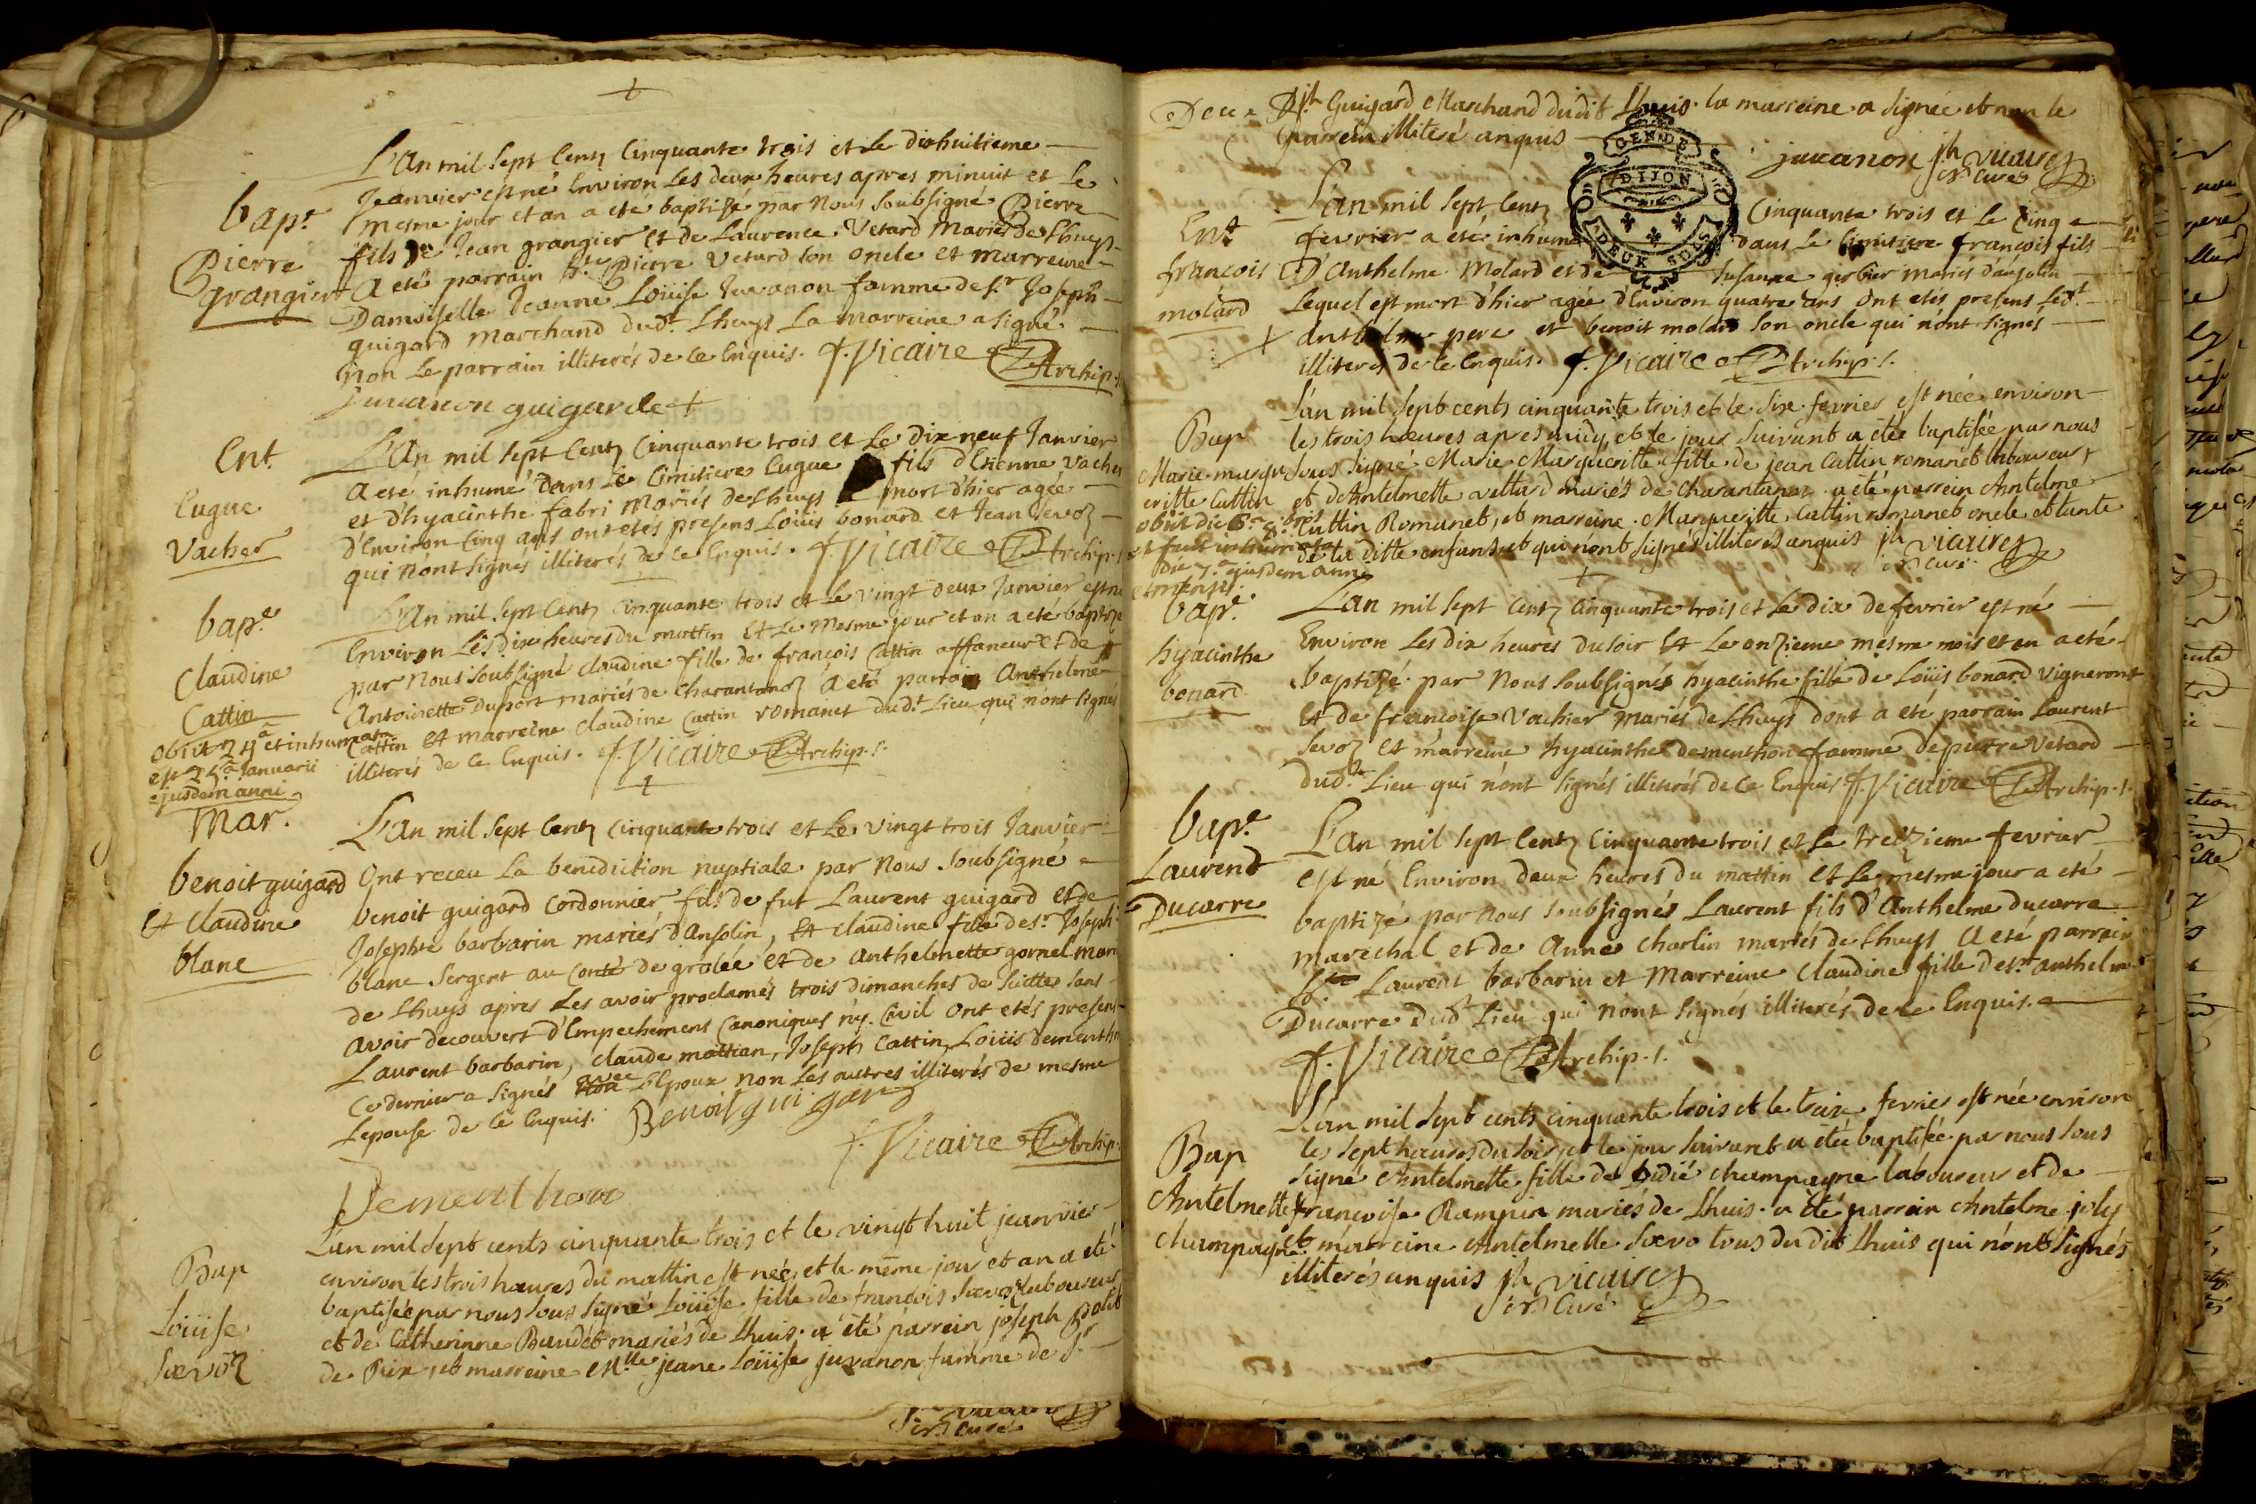 L'An mil sept Centz Cinquante trois et le dixhuitieme
Jeanvier est né Environ les deux heures apres minuit et le
bap.e
mesme jour et an a eté baptizé par Nous soubsigné Pierre
Pierre
fils de Jean grangier et de Laurence Vetard Mariés de Lhuys
grangier
A eté parrain Pierre Vetard son oncle et marreine
Damoiselle Jeanne Loüise Juvanon famme de s.r Joseph
guigard marchand dud.t Lhuys La marreine a signé
non le parrain illiterés de ce Enquis. f. Vicaire Archip.s.
Juvanon guigarde
Ent.
L'An mil sept Centz Cinquante trois et le dix neuf Janvier
A eté inhumé dans le Cimitiere Eugue fils d'Etienne vacher
Eugue
et d'hyacinthe fabri Mariés de Lhuys mort d'hier agée
Vacher
d'Environ Cinq ans ont etés presens Loüis bonard et Jean sevoz
qui n'ont signés illiterés de ce Enquis. f. Vicaire Archip.s.
bap.e
L'An mil sept Centz Cinquante trois et le vingt deux Janvier est né
Environ les dix heures du mattin Et le mesme jour et an a eté baptizé
Claudine
par nous soubsigné Claudine fille de françois Cattin affaneur et de
Cattin
Antoinette Duport mariés de Charantonoz A eté parrain Anthelme
obiit 24a et inhumata
Cattin Et marreine Claudine Cattin romanet dud.t Lieu qui n'ont signés
est 25a Januarii
illiterés de ce Enquis. f. Vicaire Archip.s.
ejusdem anni
Mar.
L'An mil sept Centz Cinquante trois et le vingt trois Janvier
benoit guigard
Ont receu la benediction nuptiale par nous soubsigné
Et Claudine
benoit guigard Cordonnier fils de fut Laurent guigard et de
blanc
Josephte barbarin mariés d'Ansolin, Et Claudine fille de s.r Joseph
blanc sergent au Conté de grolée et de Anthelmette gornel mariés
de Lhuys apres les avoir proclamés trois dimanches de suitte sans
avoir decouvert d'Empechemens Canoniques ny Civil Ont etés presens
Laurent barbarin, Claude mattian, Joseph Cattin, Loüis dementhon
Ce dernier a signés avec L'Epoux non les autres illiterés de mesme
Lepouse de ce Enquis. Benoit guigard
f. Vicaire Archip.
Dementhon
L'an mil sept cents cinquante trois et le vingt huit jeanvier
Bap
environ les trois heures du mattin est née et le même jour et an a eté
Loüise
baptisée par nous sous signé Loüise fille de françois Sœvoz laboureur
Sœvoz
et de Catherinne Baudet mariés de Lhuis a été parrein joseph
de Rix, et marreine M.lle jeane Loüise juvanon famme de S.r
vicaire
curé
J.ph Guigard Marchand dudit Lhuis la marreine a signée et non le
parrein illiteré anquis
juvanon jh vicaire
curé
GEN DE DIJON
DEUX SOLS
Ent.
L'an mil sept Centz Cinquante trois et le Cinq
fevrier a eté inhumé dans le Cimitiere françois fils
françois
D'Anthelme Molard et de Susanne gerbier mariés d'ansolin
molard
Lequel est mort d'hier agée d'Environ quatre ans Ont etés presens Led.t
Anthelme pere et benoit molard son oncle qui n'ont signés
illiterés de ce Enquis. f. Vicaire Archip.s.
L'an mil sept cents cinquante trois et le six fevrier est née environ
Bap
les trois heures apres midy, et le jour suivant a étée baptisée par nous
Marie margu
sous signé Marie Margueritte fille de jean Cattin romanet laboureur
eritte Cattin
et d'Antelmette vettard mariés de Charantonoz a été parrein Antelme
Cattin Romanet, et marreine Margueritte Cattin romanet oncle et tante
de la ditte enfant et qui n'ont signés illiterés anquis jh vicaire
curé
die 7.a ejusdem anni
et mensis
bap.e
L'an mil sept Centz Cinquante trois et le dix de fevrier est né
Environ les dix heures du soir Et le onzieme mesme mois et an a eté
hyacinthe
baptizé par nous soubsignés hyacinthe fille de Loüis bonard Vigneront
bonard
Et de francoise Vachier mariés de Lhuys dont a eté parrain Laurent
sevoz Et marreine hyacinthe dementhon famme de pierre Vetard
dud.t Lieu qui n'ont signés illiterés de ce Enquis f. Vicaire Archip.s.
bap.e
L'An mil sept Centz Cinquante trois et le treizieme fevrier
Laurent
est né Environ deux heures du mattin Et le mesme jour a eté
Ducarre
baptizé par nous soubsignés Laurent fils d'Anthelme Ducarre
marechal et de Anne Charlin mariés de Lhuys A eté parrain
Laurent barbarin et Marreine Claudine fille de s.r Anthelme
Ducarre dud.t Lieu qui n'ont signés illiterés de ce Enquis.
f. Vicaire Archip.s.
L'an mil sept cents cinquante trois et le treize fevrier est née environ
Bap
les sept heures du soir, et le jour suivant a étée baptisée par nous sous
signé Antelmette fille de Didié Champagne laboureur et de
Antelmette
françoise Rampin mariés de Lhuis a été parrein Antelme joly
Champagne
et marreine Antelmette Sœvo tous du dit Lhuis qui n'ont signés
illiterés anquis jh vicaire
curé